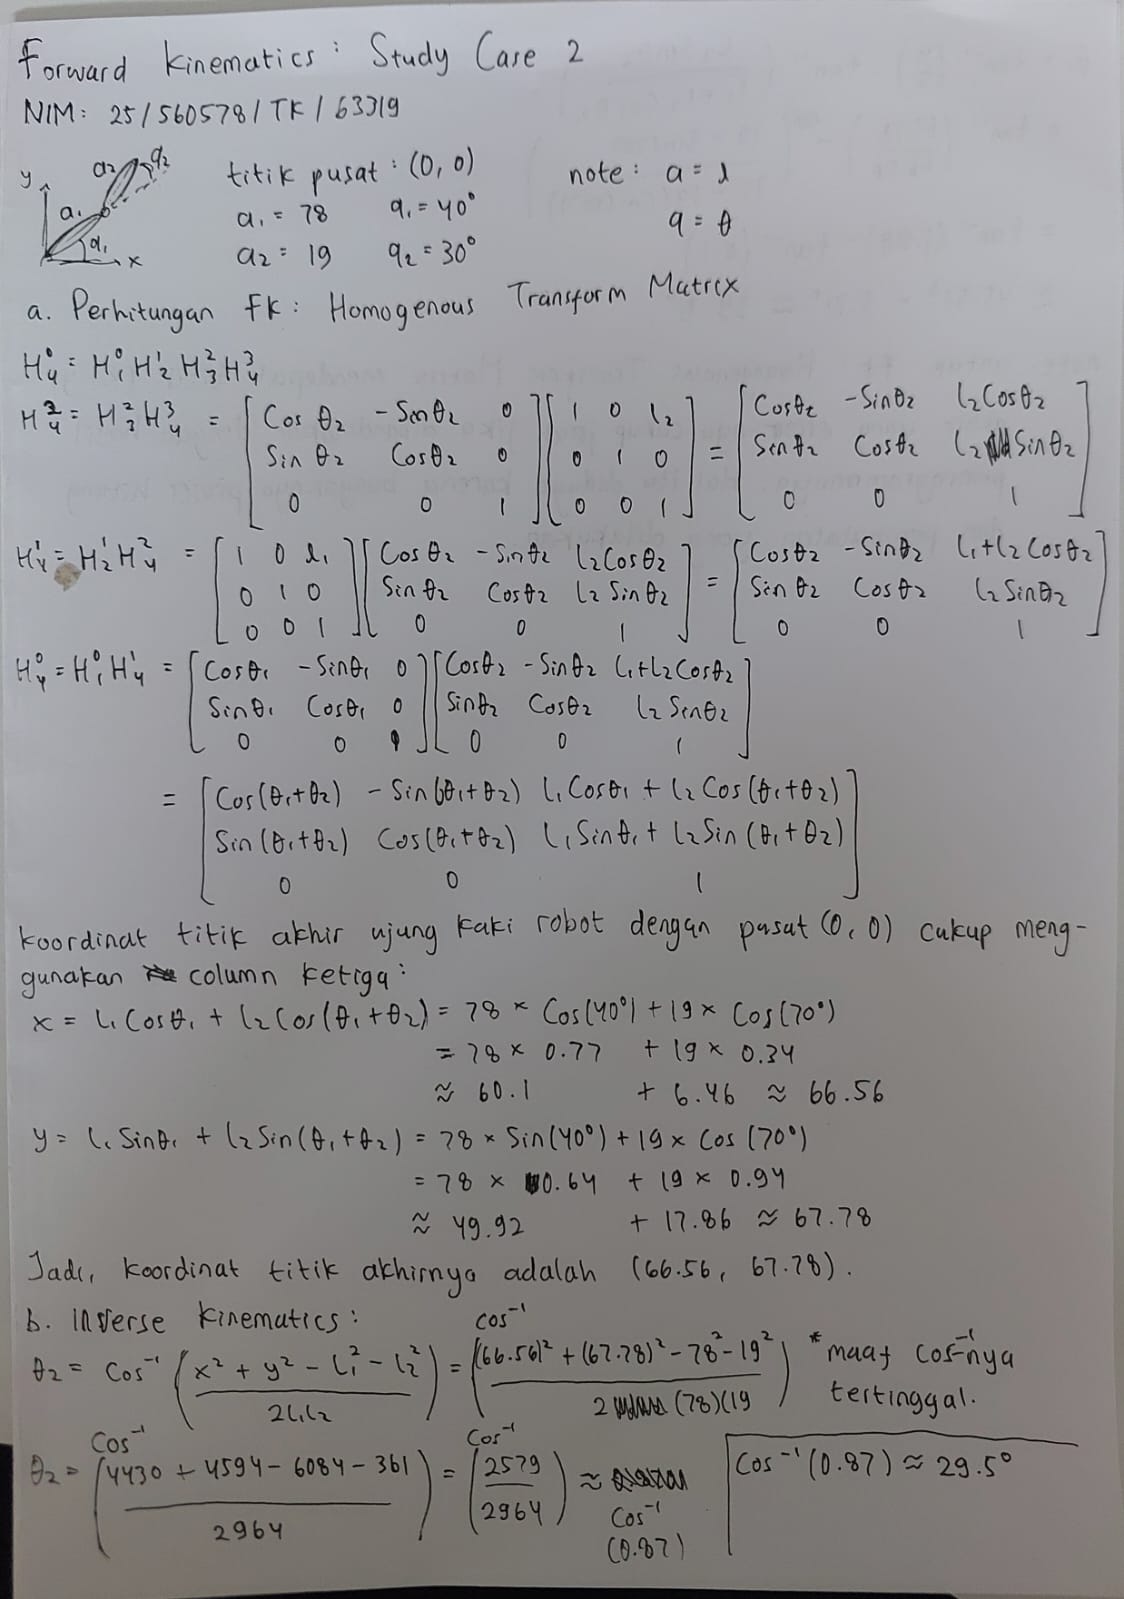 Forward Kinematics: Study Case 2
NIM: 25/560578/TK/63319
y a₂ q₂ titik pusat: (0, 0) note: a = l
a₁ q₁ a₁ = 78 q₁ = 40° q = θ
x a₂ = 19 q₂ = 30°
a. Perhitungan FK: Homogenous Transform Matrix
H⁰₄ = H⁰₁ H¹₂ H²₃ H³₄
H²₄ = H²₃ H³₄ = [Cos θ₂ -Sin θ₂ 0] [1 0 l₂] = [Cos θ₂ -Sin θ₂ l₂ Cos θ₂]
[Sin θ₂ Cos θ₂ 0] [0 1 0] [Sin θ₂ Cos θ₂ l₂ Sin θ₂]
[0 0 1] [0 0 1] [0 0 1]
H¹₄ = H¹₂ H²₄ = [1 0 l₁] [Cos θ₂ -Sin θ₂ l₂ Cos θ₂] = [Cos θ₂ -Sin θ₂ l₁+l₂ Cos θ₂]
[0 1 0] [Sin θ₂ Cos θ₂ l₂ Sin θ₂] [Sin θ₂ Cos θ₂ l₂ Sin θ₂]
[0 0 1] [0 0 1] [0 0 1]
H⁰₄ = H⁰₁ H¹₄ = [Cos θ₁ -Sin θ₁ 0] [Cos θ₂ -Sin θ₂ l₁+l₂ Cos θ₂]
[Sin θ₁ Cos θ₁ 0] [Sin θ₂ Cos θ₂ l₂ Sin θ₂]
[0 0 1] [0 0 1]
= [Cos(θ₁+θ₂) -Sin(θ₁+θ₂) l₁ Cos θ₁ + l₂ Cos(θ₁+θ₂)]
[Sin(θ₁+θ₂) Cos(θ₁+θ₂) l₁ Sin θ₁ + l₂ Sin(θ₁+θ₂)]
[0 0 1]
koordinat titik akhir ujung kaki robot dengan pusat (0, 0) cukup meng-
gunakan column ketiga:
x = l₁ Cos θ₁ + l₂ Cos(θ₁+θ₂) = 78 × Cos(40°) + 19 × Cos(70°)
= 78 × 0.77 + 19 × 0.34
≈ 60.1 + 6.46 ≈ 66.56
y = l₁ Sin θ₁ + l₂ Sin(θ₁+θ₂) = 78 × Sin(40°) + 19 × Cos(70°)
= 78 × 0.64 + 19 × 0.94
≈ 49.92 + 17.86 ≈ 67.78
Jadi, koordinat titik akhirnya adalah (66.56, 67.78).
b. Inverse Kinematics:
θ₂ = Cos⁻¹ ((x² + y² - l₁² - l₂²) / 2l₁l₂) = cos⁻¹ ((66.56)² + (67.78)² - 78² - 19²) / 2(78)(19) *maaf Cos⁻¹nya
tertinggal.
θ₂ = Cos⁻¹ ((4430 + 4594 - 6084 - 361) / 2964) = Cos⁻¹ (2579 / 2964) ≈ Cos⁻¹ (0.87) Cos⁻¹(0.87) ≈ 29.5°